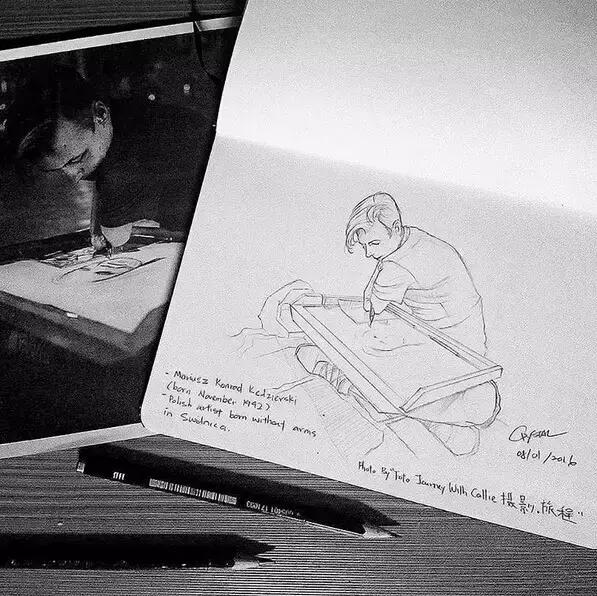 - Mariusz Konrad Kędzierski
(born November 1992)
- Polish artist born without arms
in Swidnica.
08/01/2016
Photo By "Foto Journey With Collie 摄影.旅程"